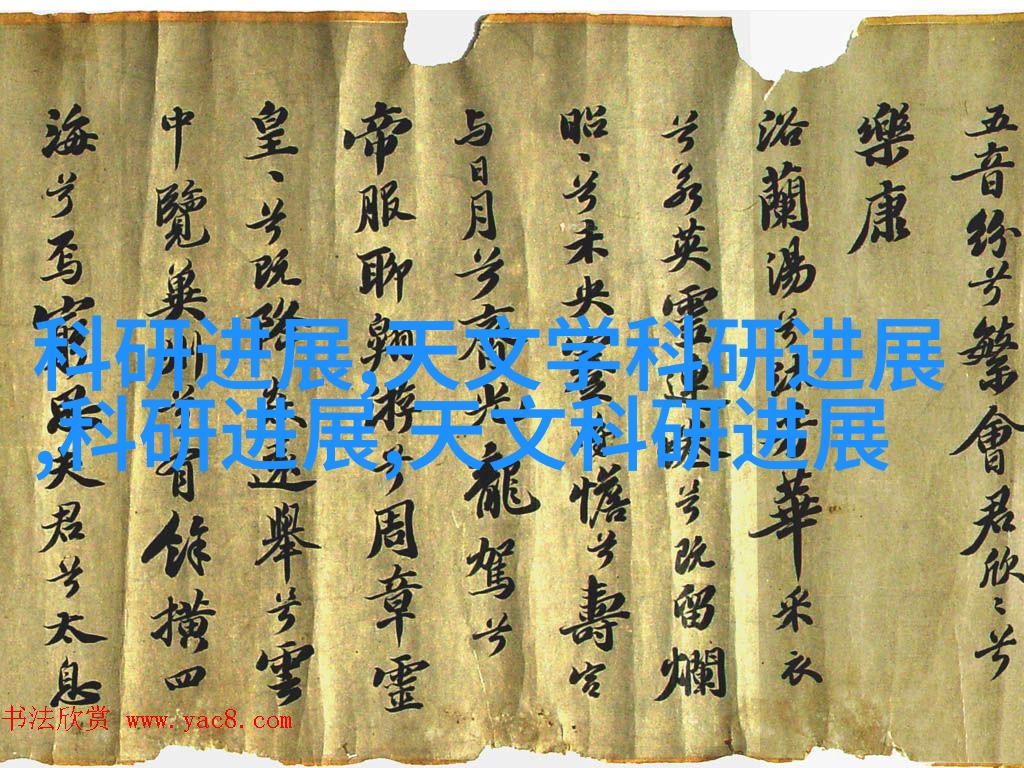 五音紛兮繁會君欣〻兮
樂康
浴蘭湯兮沐芳華采衣
兮若英靈連兮既留爛
昭〻兮未央憺兮壽宮
与日月兮齊光龍駕兮
帝服聊翱游兮周章靈
皇〻兮既降遠舉兮雲
中覽冀州兮有餘橫四
海兮焉窮思夫君兮太息
科研进展,天文学科研进展
,科研进展,天文科研进展
书法欣赏 www.yac8.com